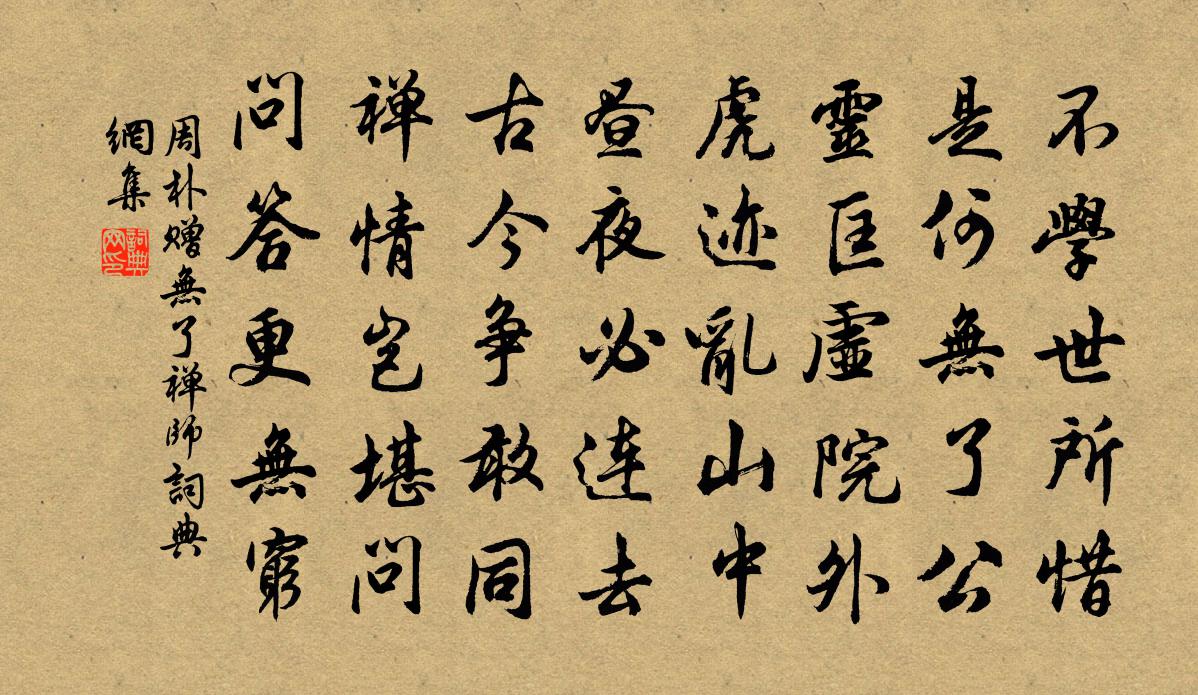 不學世所惜
是何無了公
靈匡虛院外
虎迹亂山中
昼夜必连去
古今争敢同
禅情岂堪問
問答更無窮
周朴贈無了禅師詞典
網集
詞典
网印